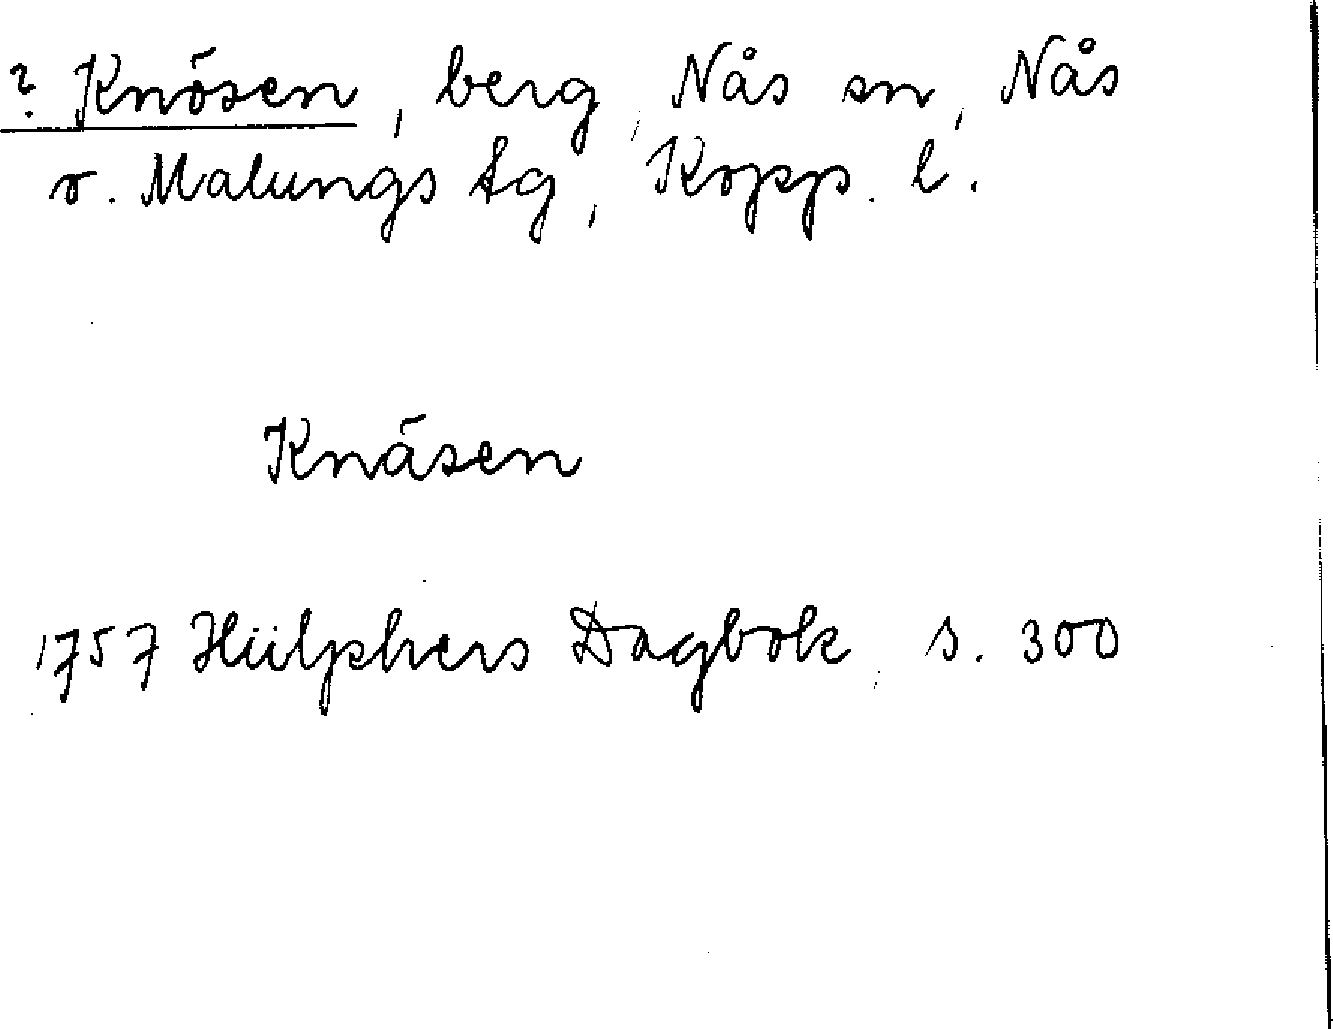 ? Knösen, berg, Nås sn, Nås
o. Malungs tg, Kopp. l.
Knäsen
1757 Hülphers Dagbok, s. 300